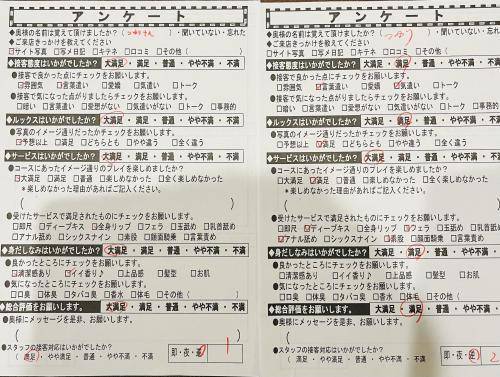 アンケート
◆奥様の名前は覚えて頂けましたか?( )・聞いていない・忘れた
◆ご来店きっかけを教えてください
□サイト写真 □写メ日記 □キテネ □口コミ □その他( )
◆接客態度はいかがでしたか? 大満足・満足・普通・やや不満・不満
●接客で良かった点にチェックをお願いします。
□雰囲気 □言葉遣い □愛嬌 □気遣い □トーク
●接客で気になった点がりましたらチェックをお願いします。
□暗い □言葉遣い □愛想がない □気遣いがない □トーク □事務的
◆ルックスはいかがでしたか? 大満足・満足・普通・やや不満・不満
●写真のイメージ通りだったかチェックをお願いします。
□予想以上 □満足 □どちらとも □やや違う □全く違う
◆サービスはいかがでしたか? 大満足・満足・普通・やや不満・不満
●コースにあったイメージ通りのプレイを楽しめましたか?
□大満足 □満足 □普通 □楽しめなかった □全く楽しめなかった
*楽しめなかった理由があればご記入ください。
( )
●受けたサービスで満足されたものにチェックをお願いします。
□即尺 □ディープキス □全身リップ □フェラ □玉舐め □乳首舐め
□アナル舐め □シックスナイン □素股 □顔面騎乗 □言葉責め
◆身だしなみはいかがでしたか? 大満足・満足・普通・やや不満・不満
●良かったところにチェックをお願いします。
□清潔感あり □イイ香り♪ □上品感 □髪型 □お肌
●気になったところにチェックをお願いします。
□口臭 □体臭 □タバコ臭 □香水 □体毛 □その他( )
◆総合評価をお願いします。 大満足・満足・普通・やや不満・不満
●奥様にメッセージを是非、お願いします。
( )
●スタッフの接客対応はいかがでしたか?
(満足・やや満足・普通・やや不満・不満)
即・夜・逆 1
アンケート
◆奥様の名前は覚えて頂けましたか?( )・聞いていない・忘れた
◆ご来店きっかけを教えてください
□サイト写真 □写メ日記 □キテネ □口コミ □その他( )
◆接客態度はいかがでしたか? 大満足・満足・普通・やや不満・不満
●接客で良かった点にチェックをお願いします。
□雰囲気 □言葉遣い □愛嬌 □気遣い □トーク
●接客で気になった点がりましたらチェックをお願いします。
□暗い □言葉遣い □愛想がない □気遣いがない □トーク □事務的
◆ルックスはいかがでしたか? 大満足・満足・普通・やや不満・不満
●写真のイメージ通りだったかチェックをお願いします。
□予想以上 □満足 □どちらとも □やや違う □全く違う
◆サービスはいかがでしたか? 大満足・満足・普通・やや不満・不満
●コースにあったイメージ通りのプレイを楽しめましたか?
□大満足 □満足 □普通 □楽しめなかった □全く楽しめなかった
*楽しめなかった理由があればご記入ください。
( )
●受けたサービスで満足されたものにチェックをお願いします。
□即尺 □ディープキス □全身リップ □フェラ □玉舐め □乳首舐め
□アナル舐め □シックスナイン □素股 □顔面騎乗 □言葉責め
◆身だしなみはいかがでしたか? 大満足・満足・普通・やや不満・不満
●良かったところにチェックをお願いします。
□清潔感あり □イイ香り♪ □上品感 □髪型 □お肌
●気になったところにチェックをお願いします。
□口臭 □体臭 □タバコ臭 □香水 □体毛 □その他( )
◆総合評価をお願いします。 大満足・満足・普通・やや不満・不満
●奥様にメッセージを是非、お願いします。
( )
●スタッフの接客対応はいかがでしたか?
(満足・やや満足・普通・やや不満・不満)
即・夜・逆 2